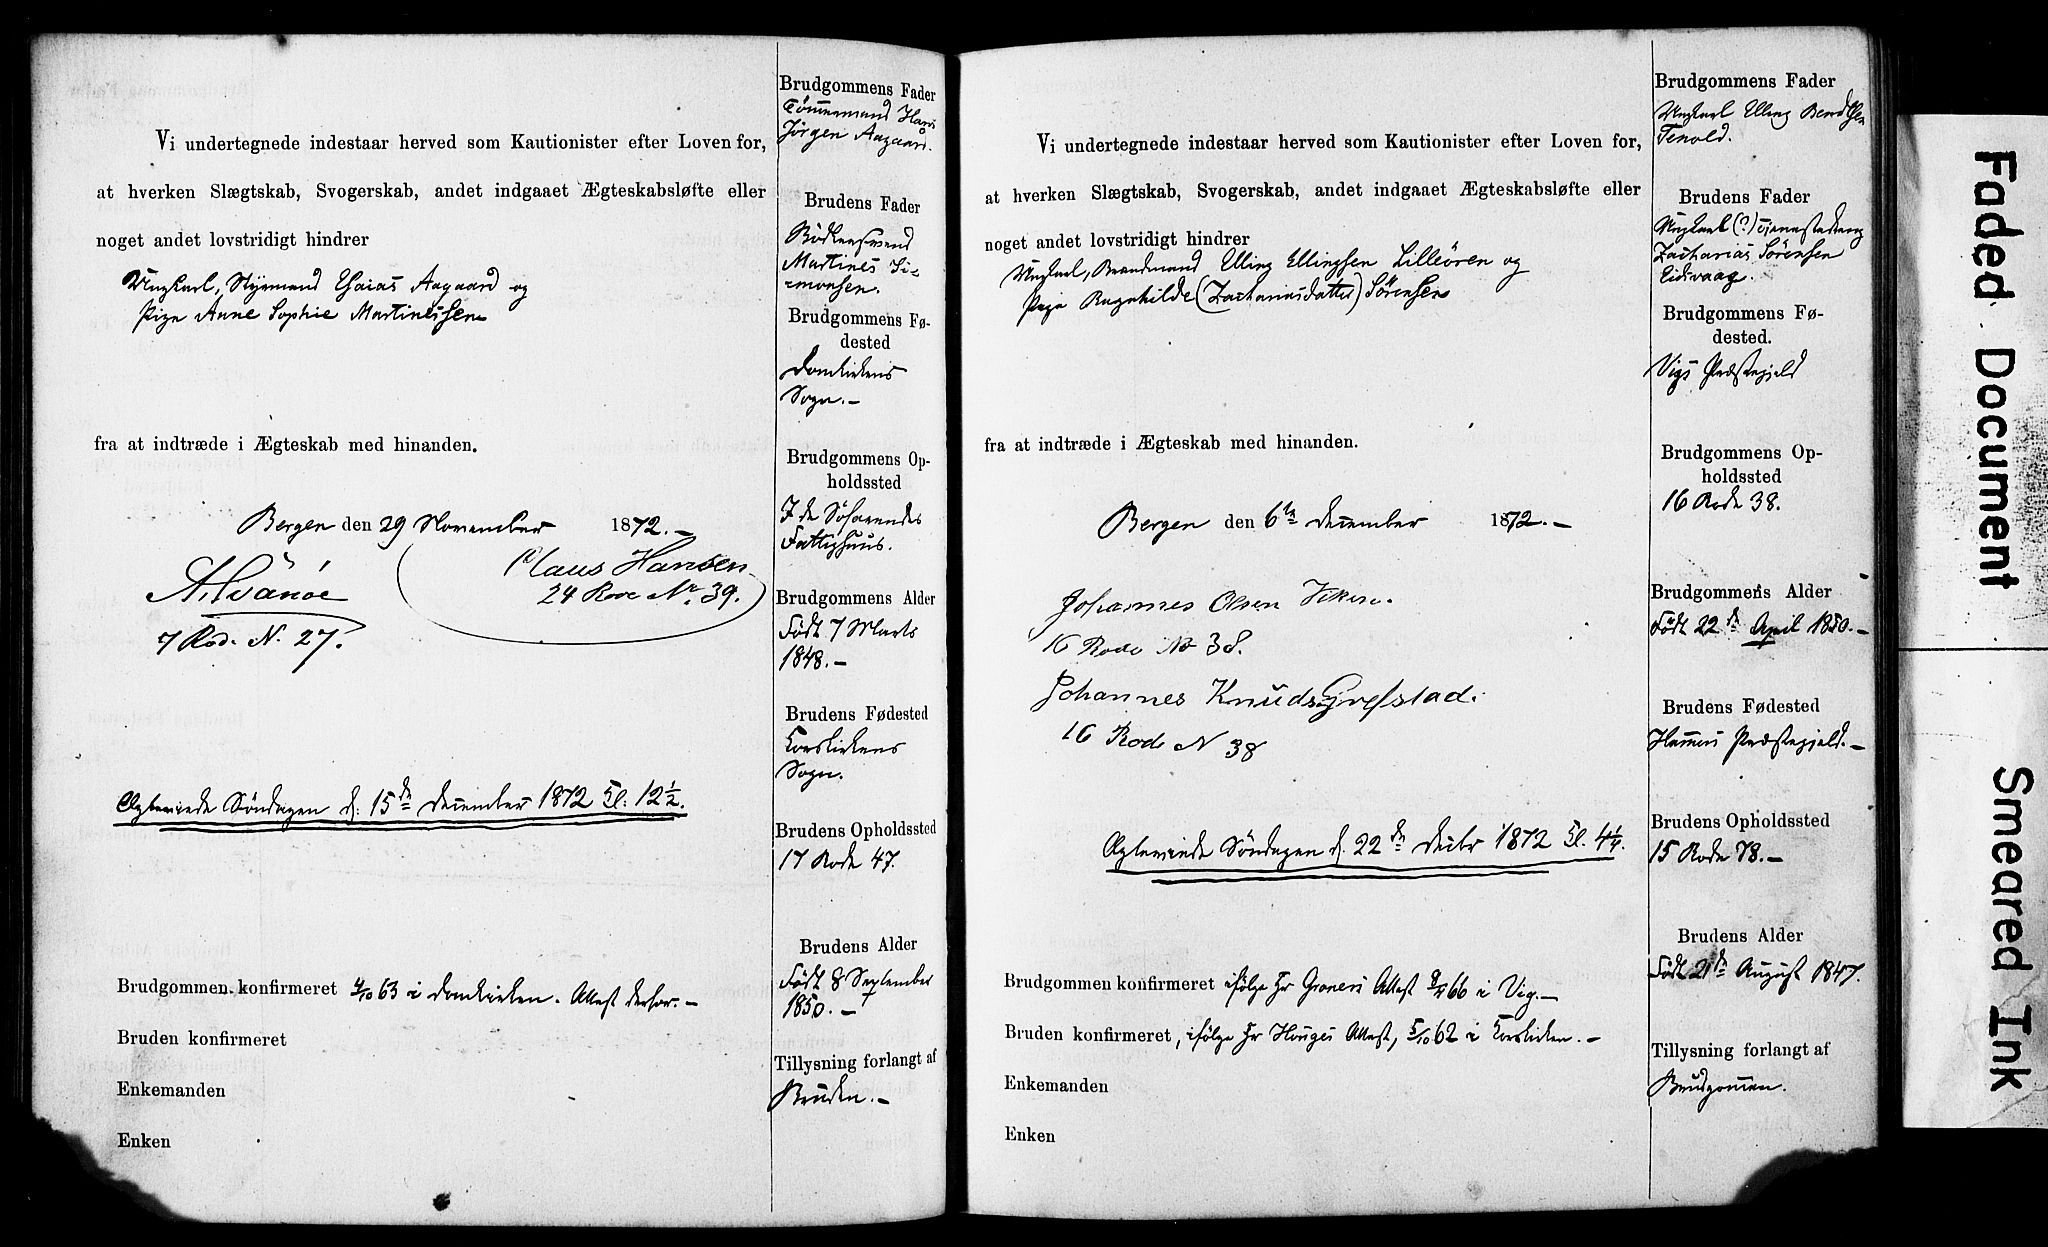 Vi undertegnede indestaar herved som Kautionister efter Loven for,
at hverken Slægtskab, Svogerskab, andet indgaaet Ægteskabsløfte eller
noget andet lovstridigt hindrer
Ungkarl, Styrmand Esaias Aagaard og
Pige Anne Sophie Martinessen
fra at indtræde i Ægteskab med hinanden.
Bergen den 29 November 1872.-
A. Svanøe
7 Rod. N. 27.
Claus Hansen
24 Rode Nr. 39.
Ægteviede Søndagen d. 15de December 1872 Kl. 12 1/2.
Brudgommen konfirmeret 4/10 63 i Domkirken. Attest derfor.-
Bruden konfirmeret
Enkemanden
Enken
Brudgommens Fader
Tømmermand Hans
Jørgen Aagaard.
Brudens Fader
Bødkersvend
Martines Si-
monsen.
Brudgommens Fø-
dested
Domkirkens
Sogn.-
Brudgommens Op-
holdssted
I de Søfarendes
Fattighuus.
Brudgommens Alder
Født 7 Marts
1848.-
Brudens Fødested
Korskirkens
Sogn.
Brudens Opholdssted
17 Rode 47.
Brudens Alder
Født 8 September
1850.-
Tillysning forlangt af
Bruden.-
Vi undertegnede indestaar herved som Kautionister efter Loven for,
at hverken Slægtskab, Svogerskab, andet indgaaet Ægteskabsløfte eller
noget andet lovstridigt hindrer
Ungkarl, Brandmand Elling Ellingsen Lilleøren og
Pige Ragnhilde (Zachariasdatter) Sørensen
fra at indtræde i Ægteskab med hinanden.
Bergen den 6te December 1872.-
Johannes Olsen
16 Rode No 38.
Johannes Knuds
16 Rode N 38
Ægteviede Søndagen d. 22de Decbr 1872 Kl. 4 1/4.
Brudgommen konfirmeret ifølge Hr Attest 66 i Vig.-
Bruden konfirmeret, ifølge Hr Hauges Attest, 5/10 62 i Korskirken.-
Enkemanden
Enken
Brudgommens Fader
Ungkarl Elling Bendtsen
Tenold.
Brudens Fader
Ungkarl (?)
Zacharias Sørensen
Eidsvaag.
Brudgommens Fø-
dested.
Vigs Præstegjeld
Brudgommens Op-
holdssted
16 Rode 38.
Brudgommens Alder
Født 22de April 1850.-
Brudens Fødested
Hammers Præstegjeld.-
Brudens Opholdssted
15 Rode 78.-
Brudens Alder
Født 21de August 1847.
Tillysning forlangt af
Brudgommen.
Faded Document
Smeared Ink